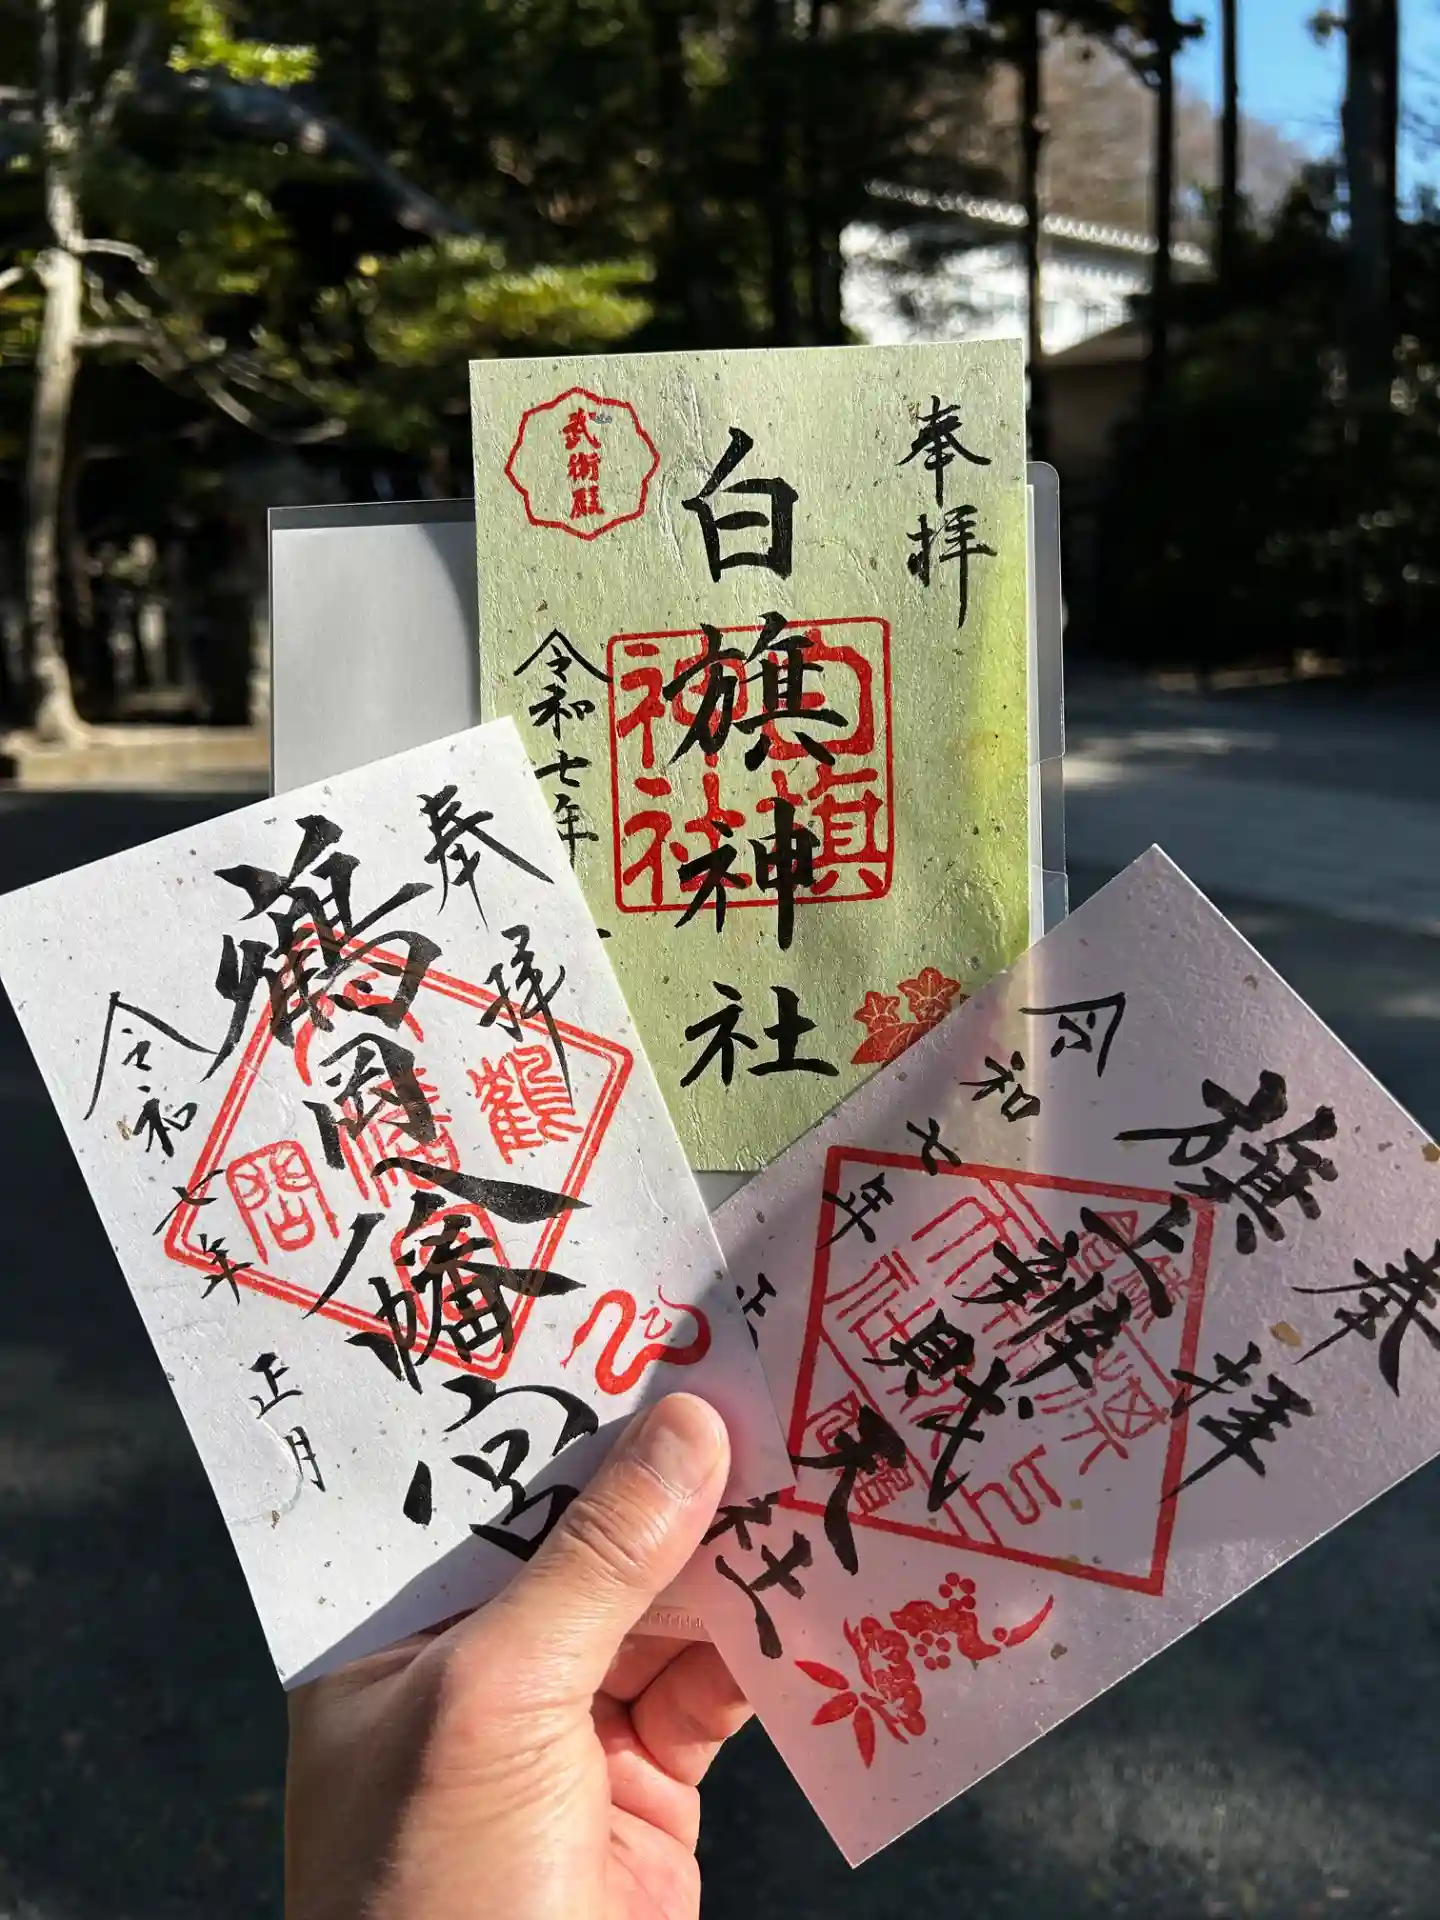 奉拝
白旗神社
武衛殿
令和七年
白旗
神社
奉拝
鶴岡八幡宮
令和七年
正月
鶴
岡
奉拝
旗上辨財天社
令和七年
正